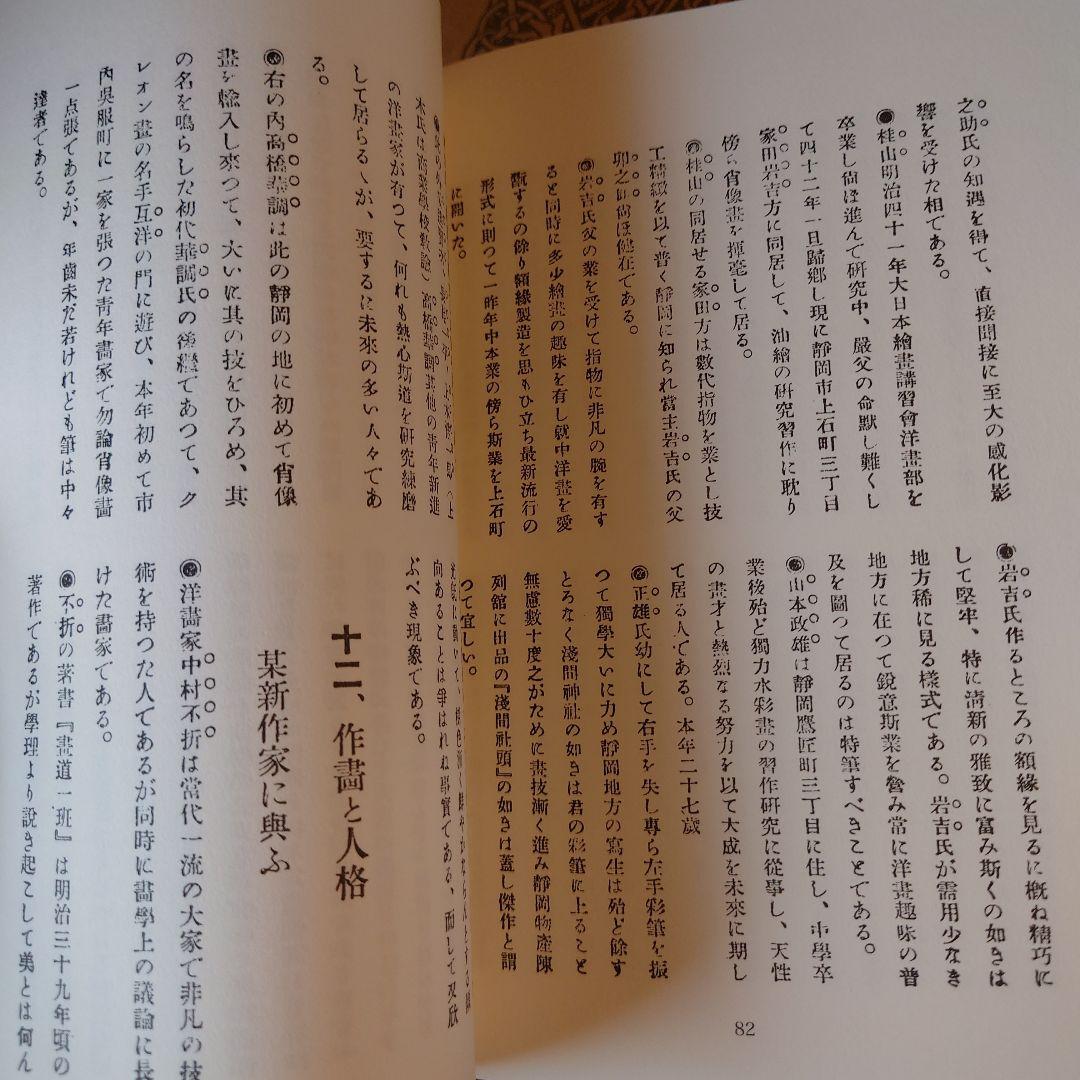 之助氏の知遇を得て、直接間接に至大の感化影
響を受けた相である。
◉桂山明治四十一年大日本繪畫講習會洋畫部を
卒業し尙ほ進んで硏究中、嚴父の命默し難くし
て四十二年一旦歸鄕し現に靜岡市上石町三丁目
家田岩吉方に同居して、油繪の硏究習作に耽り
傍ら肖像畫を揮毫して居る。
◉桂山の同居せる家田方は數代指物を業とし技
工精緻を以て普く靜岡に知られ當主岩吉氏の父
卯之助尙ほ健在である。
◉岩吉氏父の業を受けて指物に非凡の腕を有す
ると同時に多少繪畫の趣味を有し就中洋畫を愛
翫するの餘り額緣製造を思もひ立ち最新流行の
形式に則つて一昨年中本業の傍ら斯業を上石町
に開いた。
◉岩吉氏作るところの額緣を見るに槪ね精巧に
して堅牢、特に淸新の雅致に富み斯くの如きは
地方稀に見る樣式である。岩吉氏が需用少なき
地方に在つて銳意斯業を營み常に洋畫趣味の普
及を圖つて居るのは特筆すべきことである。
◉山本政雄は靜岡鷹匠町三丁目に住し、中學卒
業後殆ど獨力水彩畫の習作硏究に從事し、天性
の畫才と熱烈なる努力を以て大成を未來に期し
て居る人である。本年二十七歲
◉正雄氏幼にして右手を失し專ら左手彩筆を振
つて獨學大いに力め靜岡地方の寫生は殆ど餘す
とろなく淺間神社の如きは君の彩筆に上ること
無慮數十度之がために畫技漸く進み靜岡物產陳
列館に出品の『淺間社頭』の如きは蓋し傑作と謂
つて宜しい。
82
木氏は商業學校敎諭）高橋華調其他の靑年新進
の洋畫家が有つて、何れも熱心斯道を硏究練磨
して居らるゝが、要するに未來の多い人々であ
る。
◉右の內高橋華調は此の靜岡の地に初めて肖像
畫を輸入し來つて、大いに其の技をひろめ、其
の名を鳴らした初代華調氏の後繼であつて、ク
レオン畫の名手互洋の門に遊び、本年初めて市
內吳服町に一家を張つた靑年畫家で勿論肖像畫
一点張であるが、年齒未だ若けれども筆は中々
達者である。
向あることは爭はれぬ事實である、而して又欣
ぶべき現象である。
十二、作畵と人格
某新作家に與ふ
◉洋畫家中村不折は當代一流の大家で非凡の技
術を持つた人であるが同時に畫學上の議論に長
けた畫家である。
◉不折の著書『畫道一班』は明治三十九年頃の
著作であるが學理より說き起こして美とは何ん